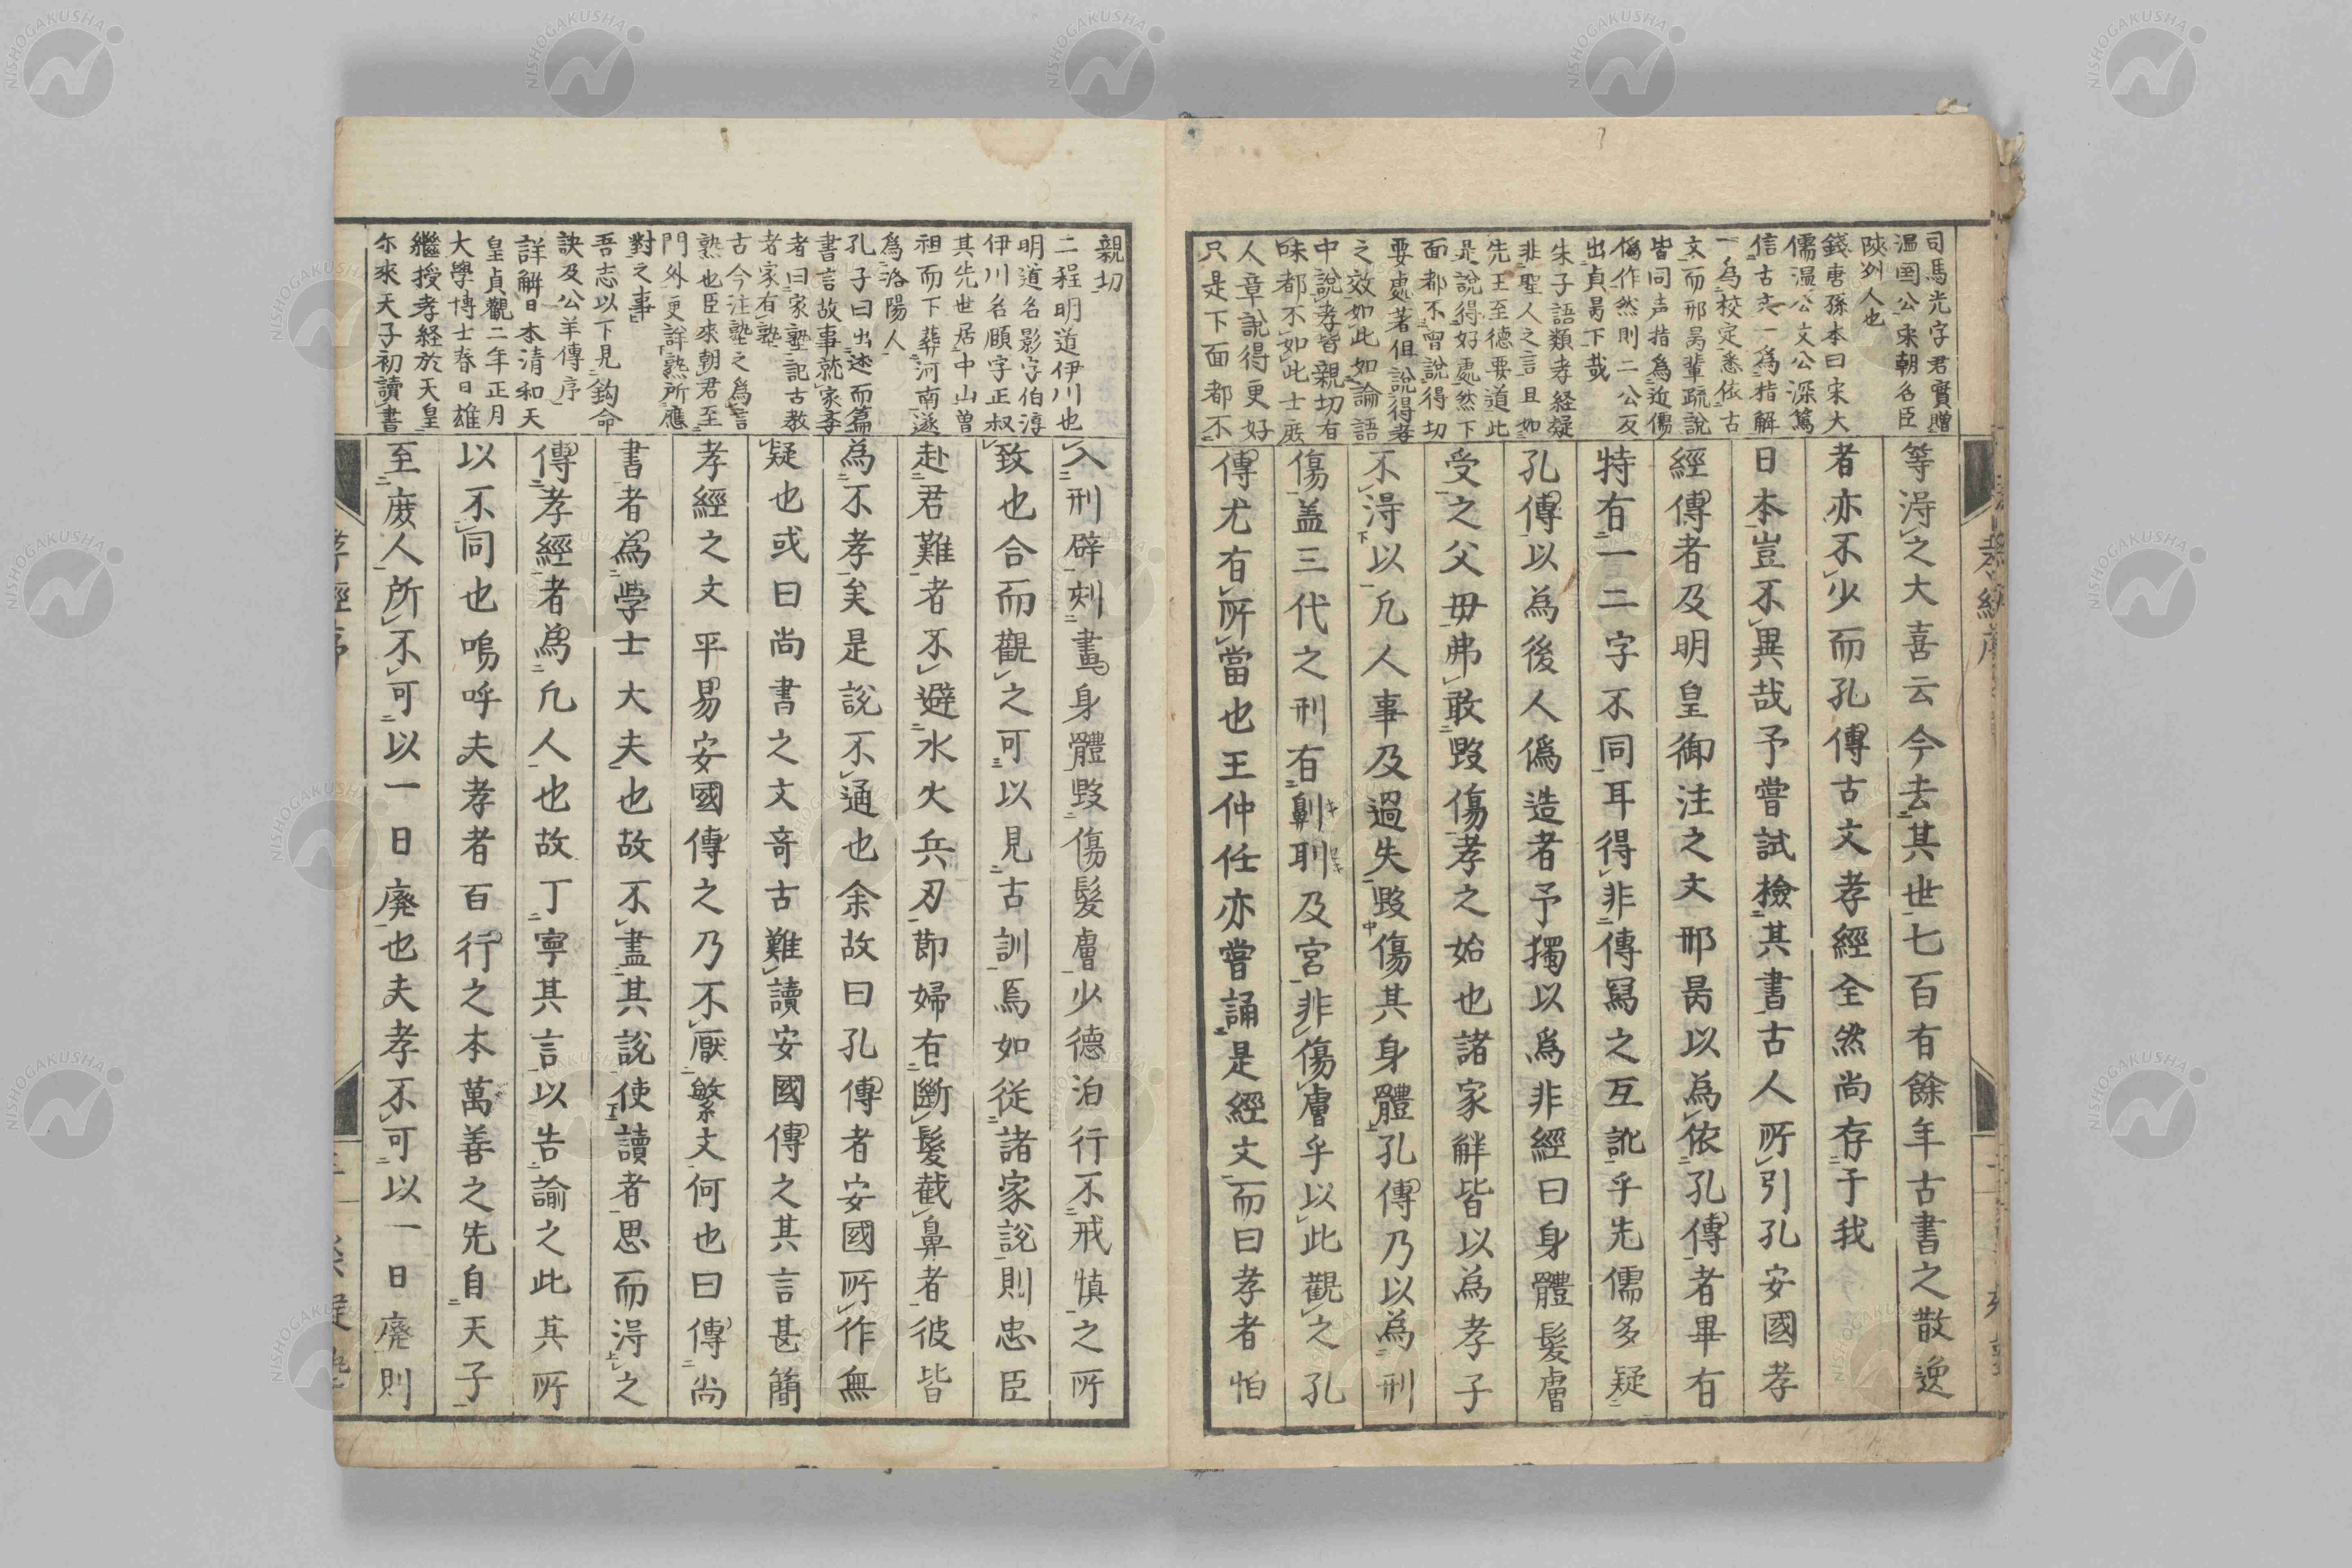 司馬光字君實贈
温国公宋朝名臣
陝州人也
錢唐孫本曰宋大
儒温公文公深篤
信古文一為指解
一為校定悉依古
文而邢昺輩疏說
皆同声指為近儒
偽作然則二公反
出貞昺下哉
朱子語類孝経疑
非聖人之言且如
先王至德要道此
是說得好處然下
面都不曾說得切
要處著但說得孝
之效如此如論語
中說孝皆親切有
味都不如此士庶
人章說得更好
只是下面都不
等淂之大喜云今去其世七百有餘年古書之散逸
者亦不少而孔傳古文孝經全然尚存于我
日本豈不異哉予嘗試檢其書古人所引孔安國孝
經傳者及明皇御注之文邢昺以為依孔傳者畢有
特有一二字不同耳得非傳寫之互訛乎先儒多疑
孔傳以為後人偽造者予獨以爲非經曰身體髮膚
受之父母弗敢毀傷孝之始也諸家解皆以為孝子
不淂以凢人事及過失毀傷其身體孔傳乃以為刑
傷盖三代之刑有劓刵及宮非傷膚乎以此觀之孔
傳尤有所當也王仲任亦嘗誦是經文而曰孝者怕
親切
二程明道伊川也
明道名影字伯淳
伊川名頤字正叔
其先世居中山曽
祖而下葬河南遂
爲洛陽人
孔子曰出述而篇
書言故事就家孝
者曰家塾記古教
者家有塾
古今注塾之為言
熟也臣來朝君至
門外更詳熟所應
對之事
吾志以下見鈎命
訣及公羊傳序
詳解日本清和天
皇貞觀二年正月
大學博士春日雄
繼授孝経於天皇
尓來天子初讀書
入刑辟刻畫身體毀傷髮膚少德泊行不戒慎之所
致也合而觀之可以見古訓焉如從諸家說則忠臣
赴君難者不避水火兵刃節婦有斷髮截鼻者彼皆
為不孝矣是說不通也余故曰孔傳者安國所作無
疑也或曰尚書之文竒古難讀安國傳之其言甚簡
孝經之文平易安國傳之乃不厭繁文何也曰傳尚
書者為學士大夫也故不盡其說使讀者思而淂之
傳孝經者為凢人也故丁寧其言以告諭之此其所
以不同也嗚呼夫孝者百行之本萬善之先自天子
至庶人所不可以一日廢也夫孝不可以一日廢則